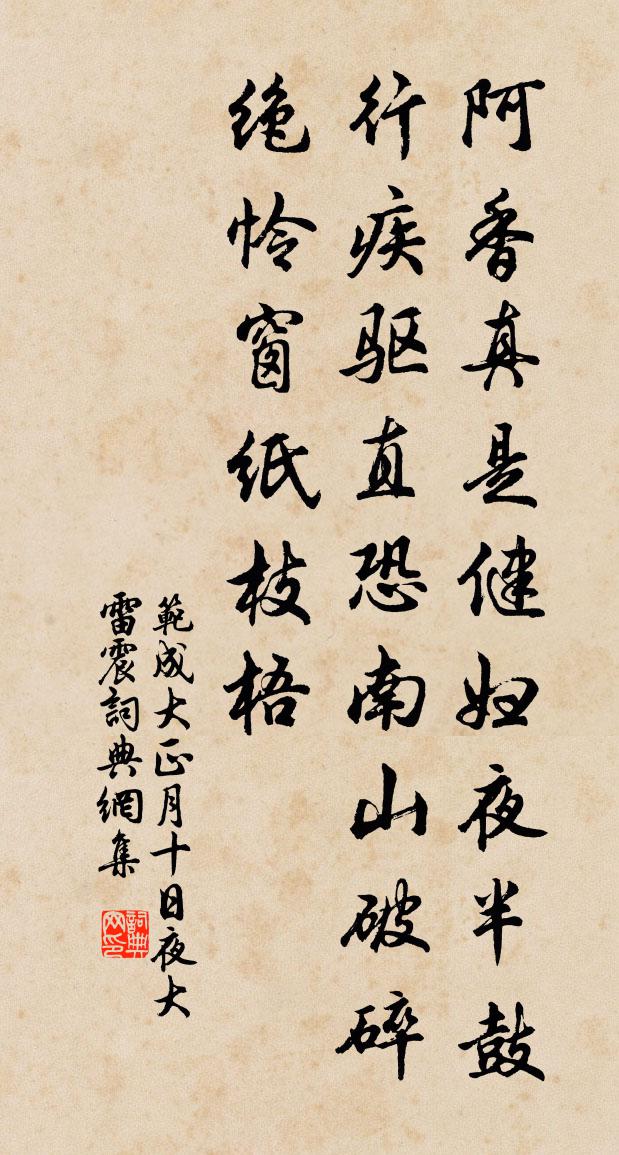 阿香真是健妇夜半鼓
行疾驱直恐南山破碎
绝怜窗纸枝梧
範成大正月十日夜大
雷震詞典網集
詞典网印